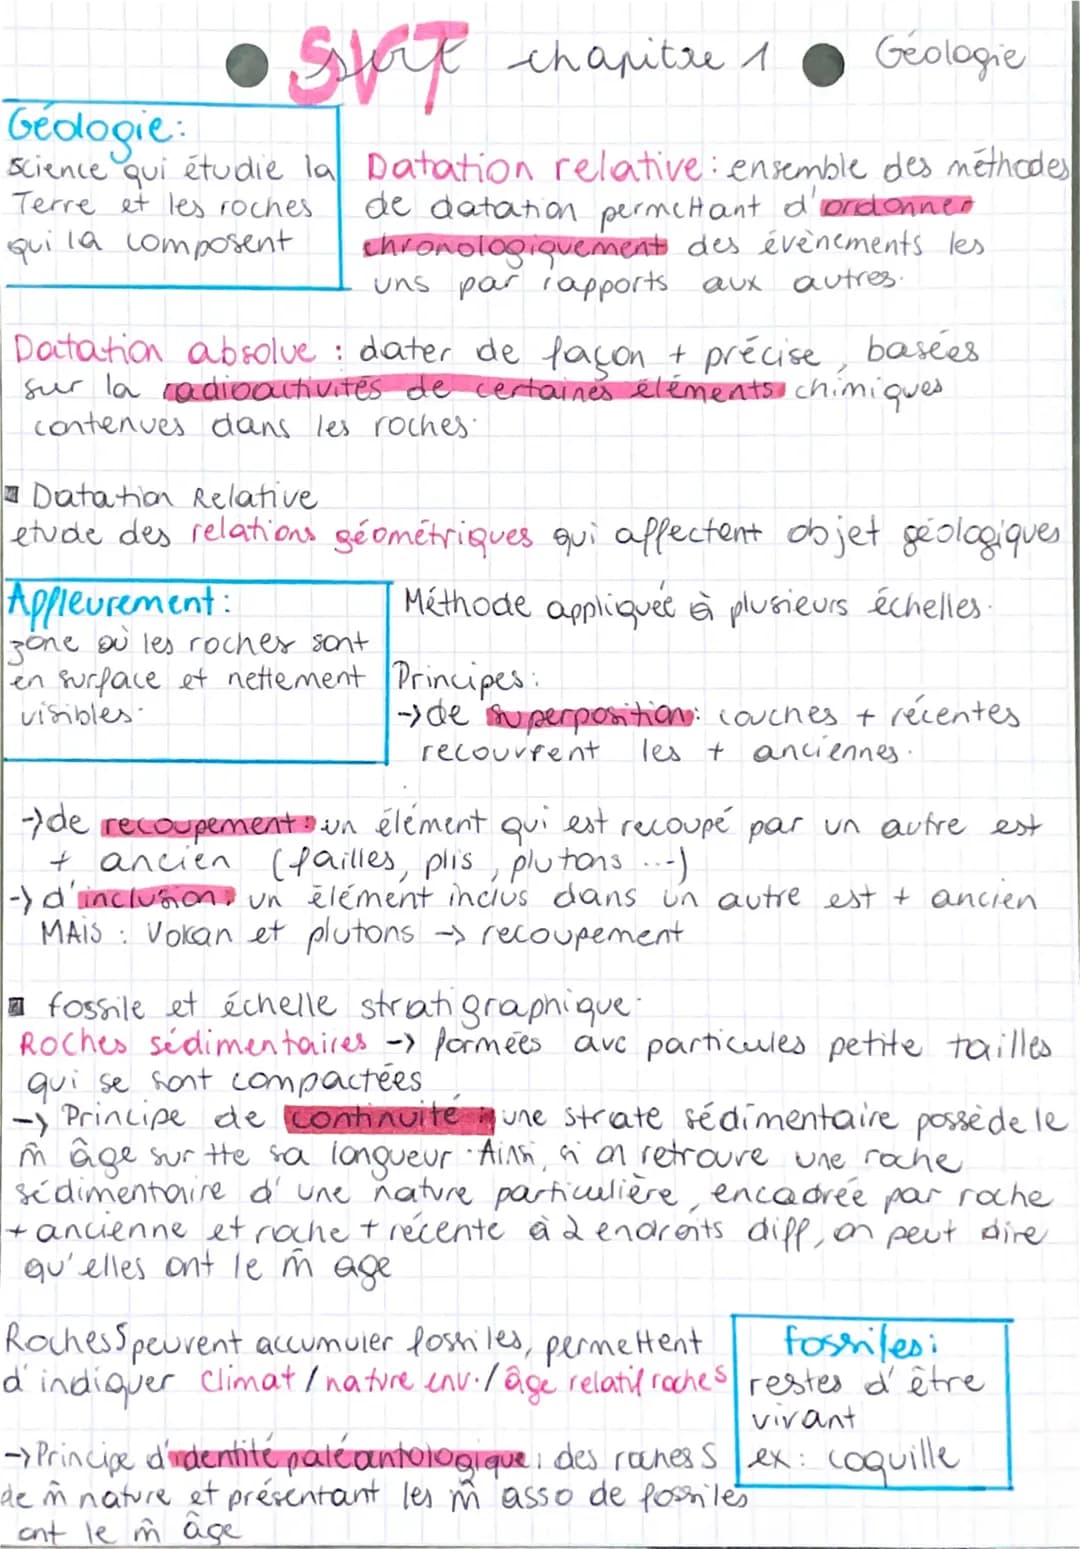 SVT svt chapitre 1 Géologie
Géologie:
science qui étudie la
Terre et les roches
qui la composent
Datation relative : ensemble des méthodes
de datation permettant d'ordonner
chronologiquement des évènements les
uns par rapports aux autres.
Datation absolue : dater de façon + précise, basées
sur la radioactivités de certaines éléments chimiques
contenues dans les roches.
Datation Relative
etude des relations géométriques qui affectent objet géologiques
Affleurement :
zone où les roches sont
en surface et nettement
visibles.
Méthode appliquée à plusieurs échelles.
Principes :
-> de superposition : couches + récentes
recouvrent les + anciennes.
-> de recoupement : un élément qui est recoupé par un autre est
+ ancien (failles, plis, plutons ...)
-> d'inclusion : un élément inclus dans un autre est + ancien
MAIS : Volcan et plutons -> recoupement
fossile et échelle stratigraphique.
Roches sédimentaires -> formées avc particules petite tailles
qui se sont compactées
-> Principe de continuité : une strate sédimentaire possède le
m̂ âge sur tte sa longueur. Ainsi, si on retrouve une roche
sédimentaire d'une nature particulière, encadrée par roche
+ ancienne et roche + récente à 2 endroits diff, on peut dire
qu'elles ont le m̂ age
Roches S peuvent accumuler fossiles, permettent
d'indiquer climat / nature env. / âge relatif roches
fossiles :
restes d'être
vivant
ex : coquille
-> Principe d'identité paléantologique : des roches S
de m̂ nature et présentant les m̂ asso de fossiles
ont le m̂ âge